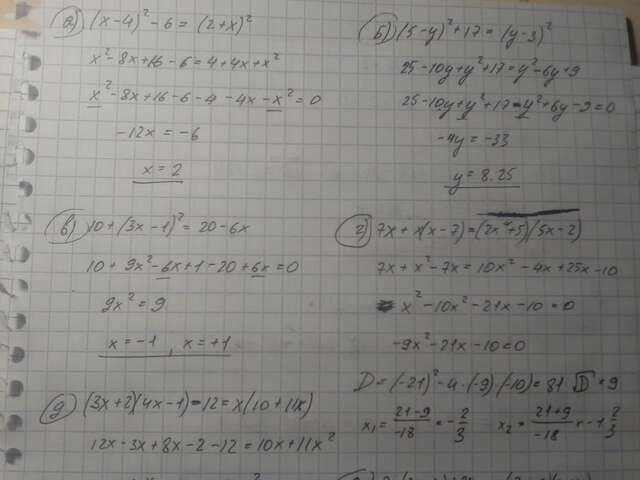 а) (x-4)² - 6 = (2+x)²
x² - 8x + 16 - 6 = 4 + 4x + x²
x² - 8x + 16 - 6 - 4 - 4x - x² = 0
-12x = -6
x = 2
б) (5-y)² + 17 = (y-3)²
25 - 10y + y² + 17 = y² - 6y + 9
25 - 10y + y² + 17 - y² + 6y - 9 = 0
-4y = -33
y = 8.25
в) 10 + (3x-1)² = 20 - 6x
10 + 9x² - 6x + 1 - 20 + 6x = 0
9x² = 9
x = -1 , x = +1
г) 7x + x(x-7) = (2x+5)(5x-2)
7x + x² - 7x = 10x² - 4x + 25x - 10
x² - 10x² - 21x - 10 = 0
-9x² - 21x - 10 = 0
D = (-21)² - 4·(-9)·(-10) = 81 √D = 9
x₁ = (21-9)/-18 = -2/3 x₂ = (21+9)/-18 = -1 2/3
д) (3x+2)(4x-1) - 12 = x(10+11x)
12x - 3x + 8x - 2 - 12 = 10x + 11x²